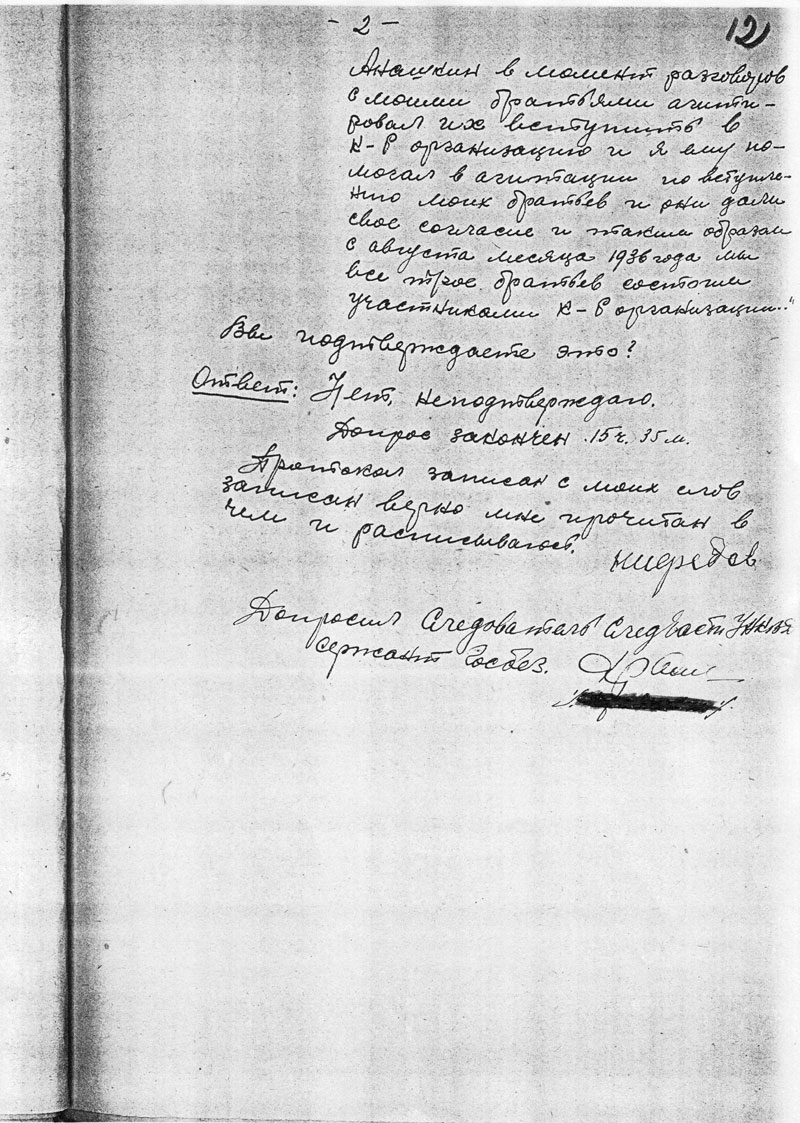 - 2 -
121
Анашкин в момент разговоров
с моими братьями агити-
ровал их вступить в
К-Р организацию и я ему по-
могал в агитации по вступле-
нию моих братьев и они дали
свое согласие и таким образом
с августа месяца 1936 года мы
все трое братьев состоим
участниками К-Р организации..."
Вы подтверждаете это?
Ответ: Нет, неподтверждаю.
Допрос закончен 15 ч. 35 м.
Протокол записан с моих слов
записан верно мне прочитан в
чем и расписываюсь.
Допросил Следователь Следчасти УНКВД
Сержант Госбез.